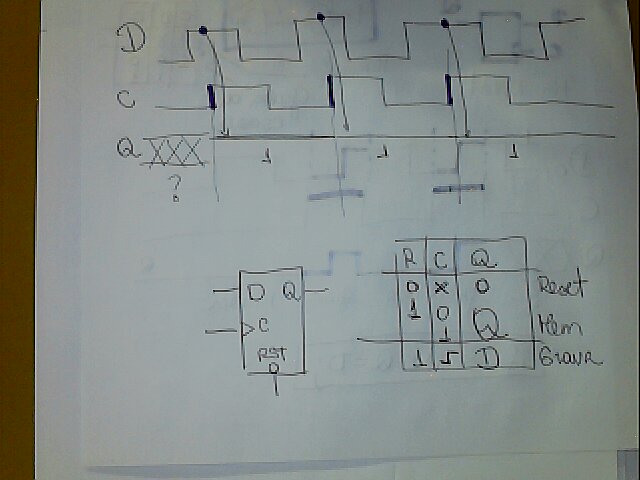 D
C
Q
?
1 1 1
D Q
C
RST
R C Q
0 x 0 Reset
1 0 Q Mem
1
1 D Grava